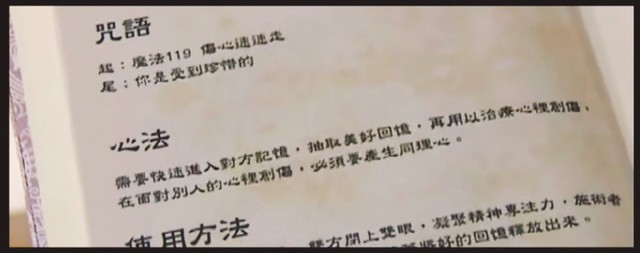 咒語
起：魔法119 傷心速速走
尾：你是受到珍惜的
心法
需要快速進入對方記憶，抽取美好回憶，再用以治療心裡創傷，
在面對別人的心裡創傷，必須要產生同理心。
使用方法
雙方閉上雙眼，凝聚精神專注力，施術者
將好的回憶釋放出來。